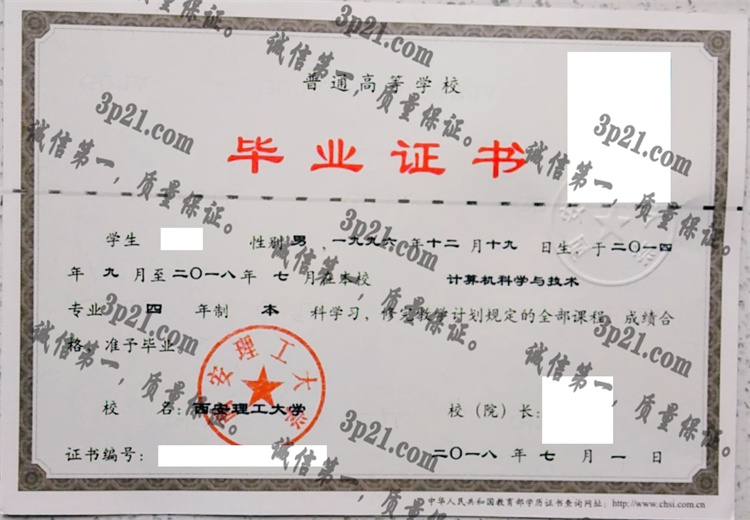 普通高等学校
毕业证书
学生 性别 男 ，一九九六 年 十二 月 十九 日生，于 二〇一四
年 九 月至 二〇一八 年 七 月在本校 计算机科学与技术
专业 四 年制 本 科学习，修完教学计划规定的全部课程，成绩合
格，准予毕业
西安理工大学
校 名：西安理工大学 校（院）长：
证书编号： 二〇一八 年 七 月 一 日
中华人民共和国教育部学历证书查询网址：http://www.chsi.com.cn
3p21.com
诚信第一，质量保证。
3p21.com
诚信第一，质量保证。
3p21.com
诚信第一，质量保证。
3p21.com
诚信第一，质量保证。
3p21.com
诚信第一，质量保证。
3p21.com
诚信第一，质量保证。
3p21.com
诚信第一，质量保证。
3p21.com